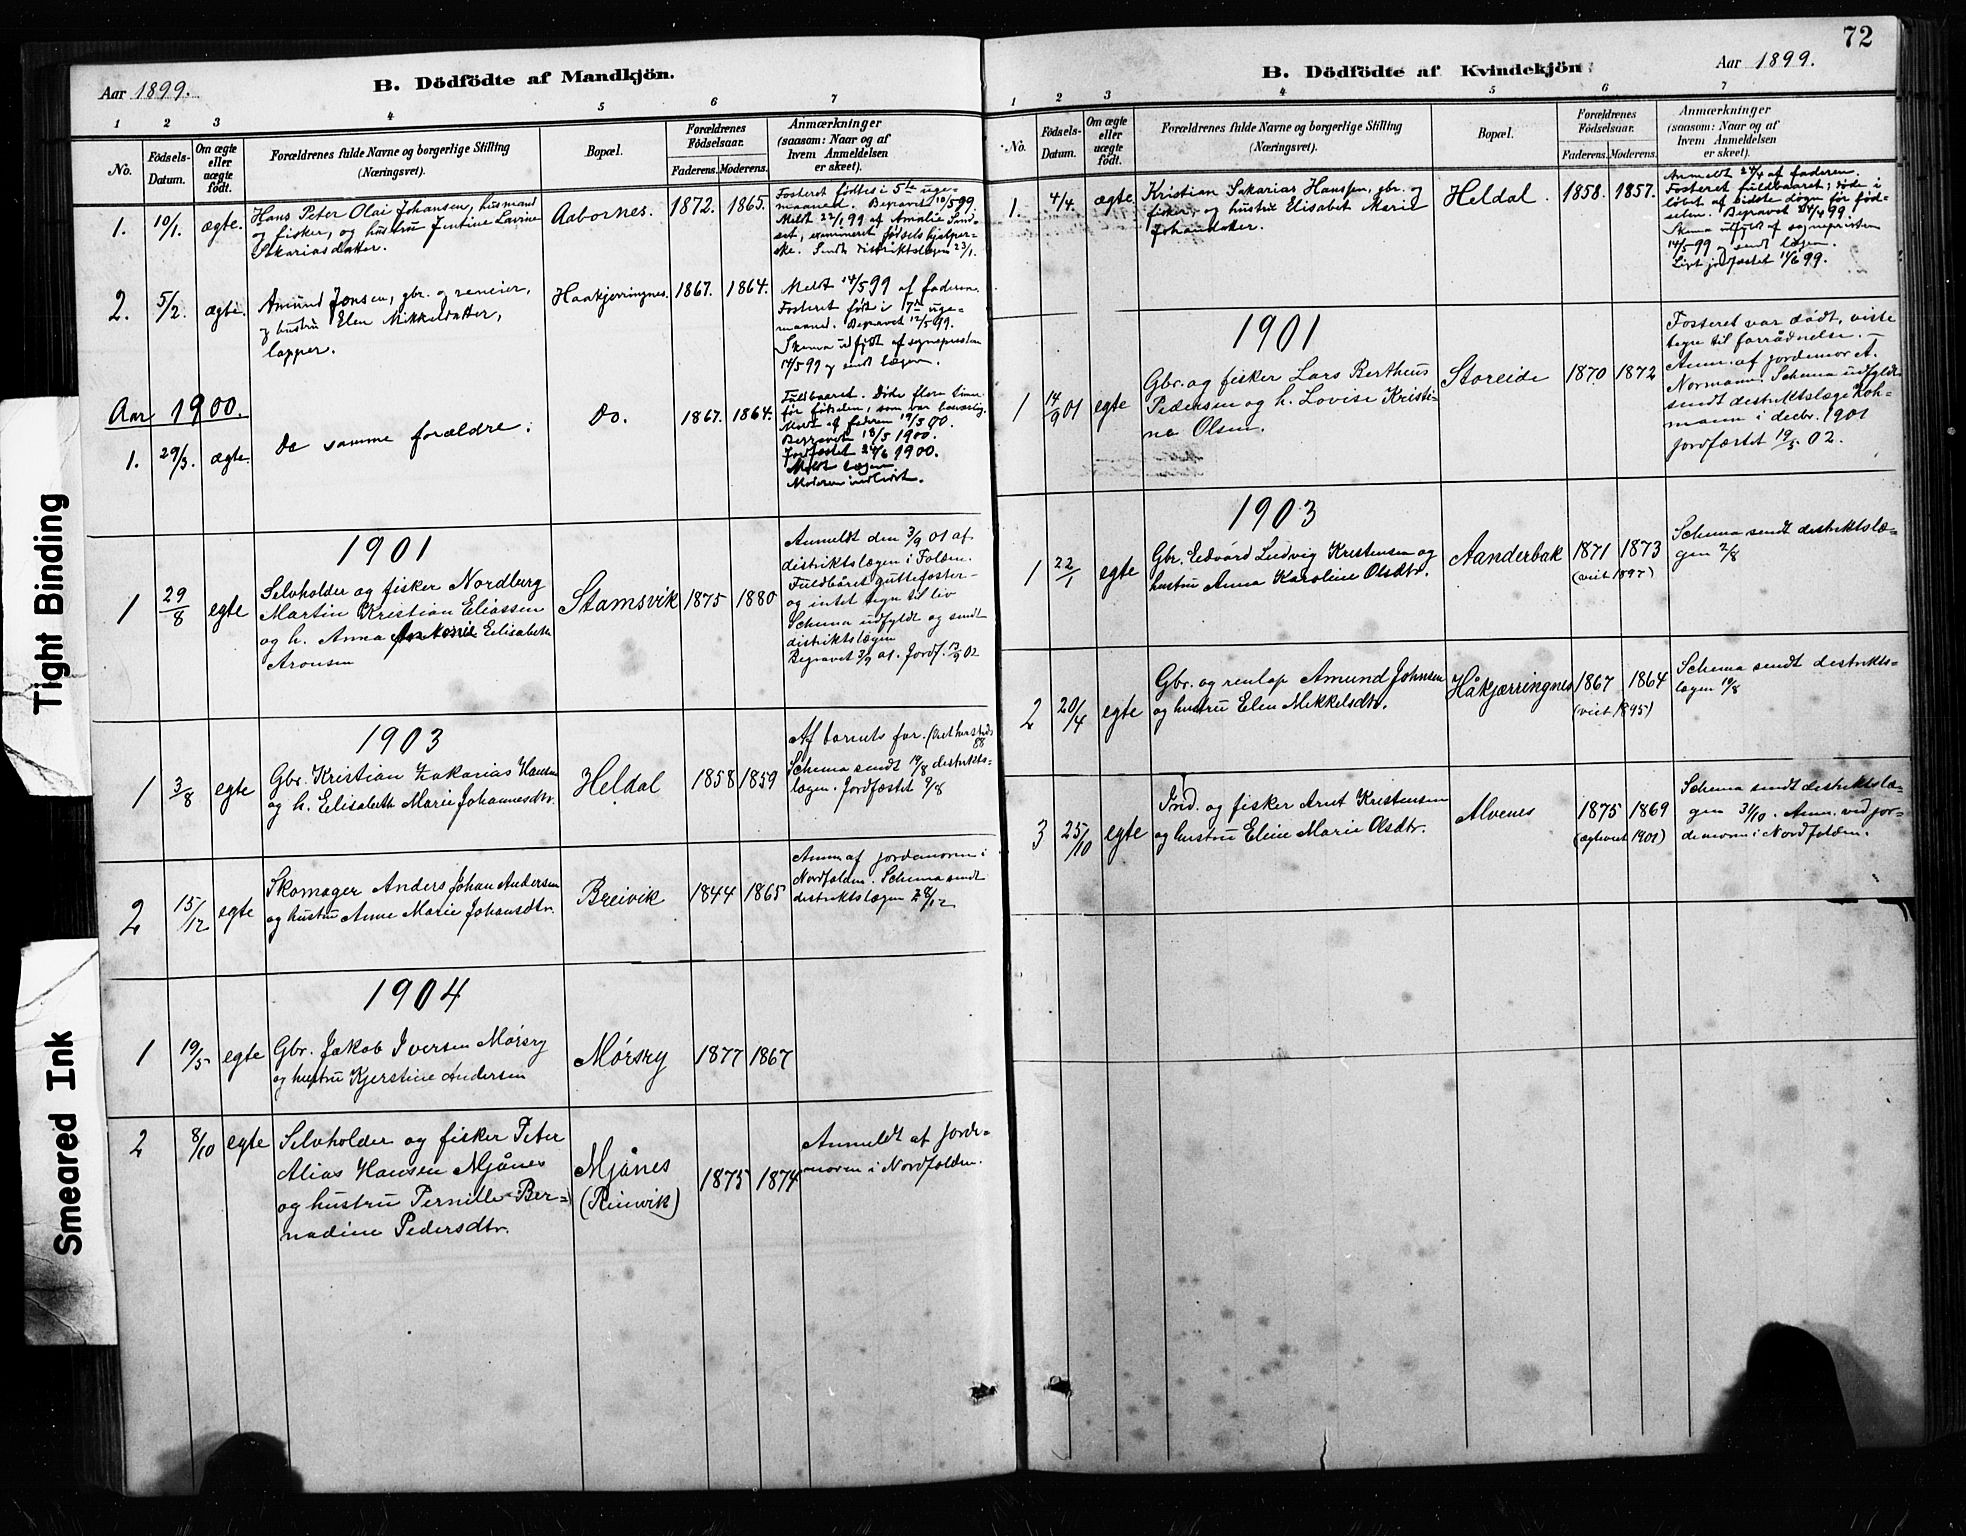 Aar 1899.
B. Dödfödte af Mandkjön.
1 2 3 4 5 6 7
No.
Födsels-
Datum.
Om ægte
eller
uægte
födt.
Forældrenes fulde Navne og borgerlige Stilling
(Næringsvei).
Bopæl.
Forældrenes
Födselsaar.
Faderens. Moderens.
Anmærkninger
(saasom: Naar og af
hvem Anmeldelsen
er skeet).
1. 10/1. ægte.
Hans Peter Olai Johansen, husmand
og fisker, og hustru Jentine Lavine
Sakariasdatter.
Aabornes. 1872. 1865.
Fosteret födtes i 5te uge-
maaned. Begravet 10/5 99.
Meldt 22/1 99 af Amalie Sand-
set, examineret födselshjælper-
ske. Sendt distriktslægen 23/1.
2. 5/2. ægte.
Amund Jonsen, gbr. og reneier,
og hustru Elen Mikkelsdatter,
lapper.
Haakjerringnes. 1867. 1864.
Meldt 14/5 99 af faderen.
Fosteret födt i 7de uge-
maaned. Begravet 12/5 99.
Skema udfyldt af sognepresten
14/5 99 og sendt lægen.
Aar 1900.
1. 29/3. ægte.
De samme forældre.
Do. 1867. 1864.
Fuldbaaret. Døde flere timer
før fødselen, som var besværlig.
Meldt af faderen 19/5 00.
Begravet 18/5 1900.
Jordfæstet 24/6 1900.
Meldt lægen.
1901
1 29/8 egte
Selvholder og fisker Nordberg
Martin Kristian Eliassen
og h. Anna Antonie Elisabeth
Aronsen
Stamsvik 1875 1880
Anmeldt den 3/9 01 af
distriktslægen i Folden.
Fuldbåret guttefoster-
og intet tegn til liv
Schema udfyldt og sendt
distriktslægen
Begravet 3/9 01. Jordf.
1903
1 3/8 egte
Gbr. Kristian Zakarias Hansen
og h. Elisabeth Marie Johannesdtr.
Heldal 1858 1859
Af barnets far.
Schema sendt 19/8 distrikts-
lægen. Jordfæstet 9/8
2 15/12 egte
Skomager Anders Johan Andersen
og hustru Anne Marie Johansdtr.
Breivik 1844 1865
Anm. af jordemoren i
Nordfolden. Schema sendt
distriktslægen 28/12
1904
1 19/5 egte
Gbr. Jakob Iversen Mørsry
og hustru Kjerstine Andersen
Mørsry 1877 1867
2 8/10 egte
Selvholder og fisker Peter
Alias Hansen Mjånes
og hustru Pernille Ber-
nadine Pedersdtr.
Mjånes
(Reinvik)
1875 1874
Anmeldt af jorde-
moren i Nordfolden.
72
B. Dödfödte af Kvindekjön
Aar 1899.
1 2 3 4 5 6 7
No.
Födsels-
Datum.
Om ægte
eller
uægte
födt.
Forældrenes fulde Navne og borgerlige Stilling
(Næringsvei).
Bopæl.
Forældrenes
Födselsaar.
Faderens. Moderens.
Anmærkninger
(saasom: Naar og af
hvem Anmeldelsen
er skeet).
1. 4/4. ægte
Kristian Sakarias Hanssen, gbr. og
fisker, og hustru Elisabet Marie
Johansdatter.
Heldal. 1858. 1857.
Anmeldt 24/4 af faderen.
Fosteret fuldbaaret; døde i
løbet af sidste døgn før föd-
selen. Begravet 24/4 99.
Skema udfyldt af sognepresten
14/5 99 og sendt lægen.
Ligt jordfæstet 11/6 99.
1901
1 14/9 01 egte
Gbr. og fisker Lars Bertheus
Pedersen og h. Lovise Kristi-
ne Olsen.
Storeide 1870 1872
Fosteret var dødt, viste
tegn til forrådnelse. –
Anm. af jordemor A.
Normann. Schema udfyldt
sendt distriktslæge Koh-
mann i decbr. 1901
jordfæstet 19/5 02.
1903
1 22/1 egte
Gbr. Edvard Ludvig Kristensen og
hustru Anna Karoline Olsdtr.
Aanderbak 1871 1873
(viet 1897)
Schema sendt distriktslæ-
gen 2/8
2 20/4 egte
Gbr. og renlap Amund Johnsen
og hustru Elen Mikkelsdtr.
Håkjærringnes 1867 1864
(viet 1895)
Schema sendt distrikts-
lægen 19/8
3 25/10 egte
Ind. og fisker Arnt Kristensen
og hustru Eline Marie Olsdtr.
Alvenes 1875 1869
(egteviet 1901)
Schema sendt distriktslæ-
gen 31/10. Anm. ved jor-
demoren i Nordfolden.
Tight Binding
Smeared Ink